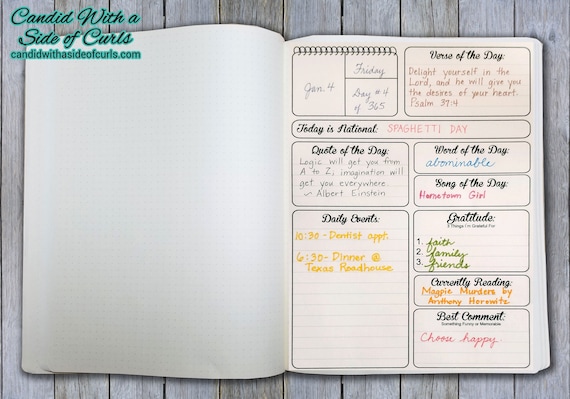 Candid With a
Side of Curls
candidwithasideofcurls.com
Jan. 4
Friday
Day #4
of 365
Verse of the Day:
Delight yourself in the
Lord, and he will give you
the desires of your heart.
Psalm 37:4
Today is National: SPAGHETTI DAY
Quote of the Day:
Logic will get you from
A to Z; imagination will
get you everywhere.
~ Albert Einstein
Word of the Day:
abominable
Song of the Day:
Hometown Girl
Daily Events:
10:30 - Dentist appt.
6:30 - Dinner @
Texas Roadhouse
Gratitude:
3 Things I'm Grateful For
1. faith
2. family
3. friends
Currently Reading:
Magpie Murders by
Anthony Horowitz
Best Comment:
Something Funny or Memorable
Choose happy.